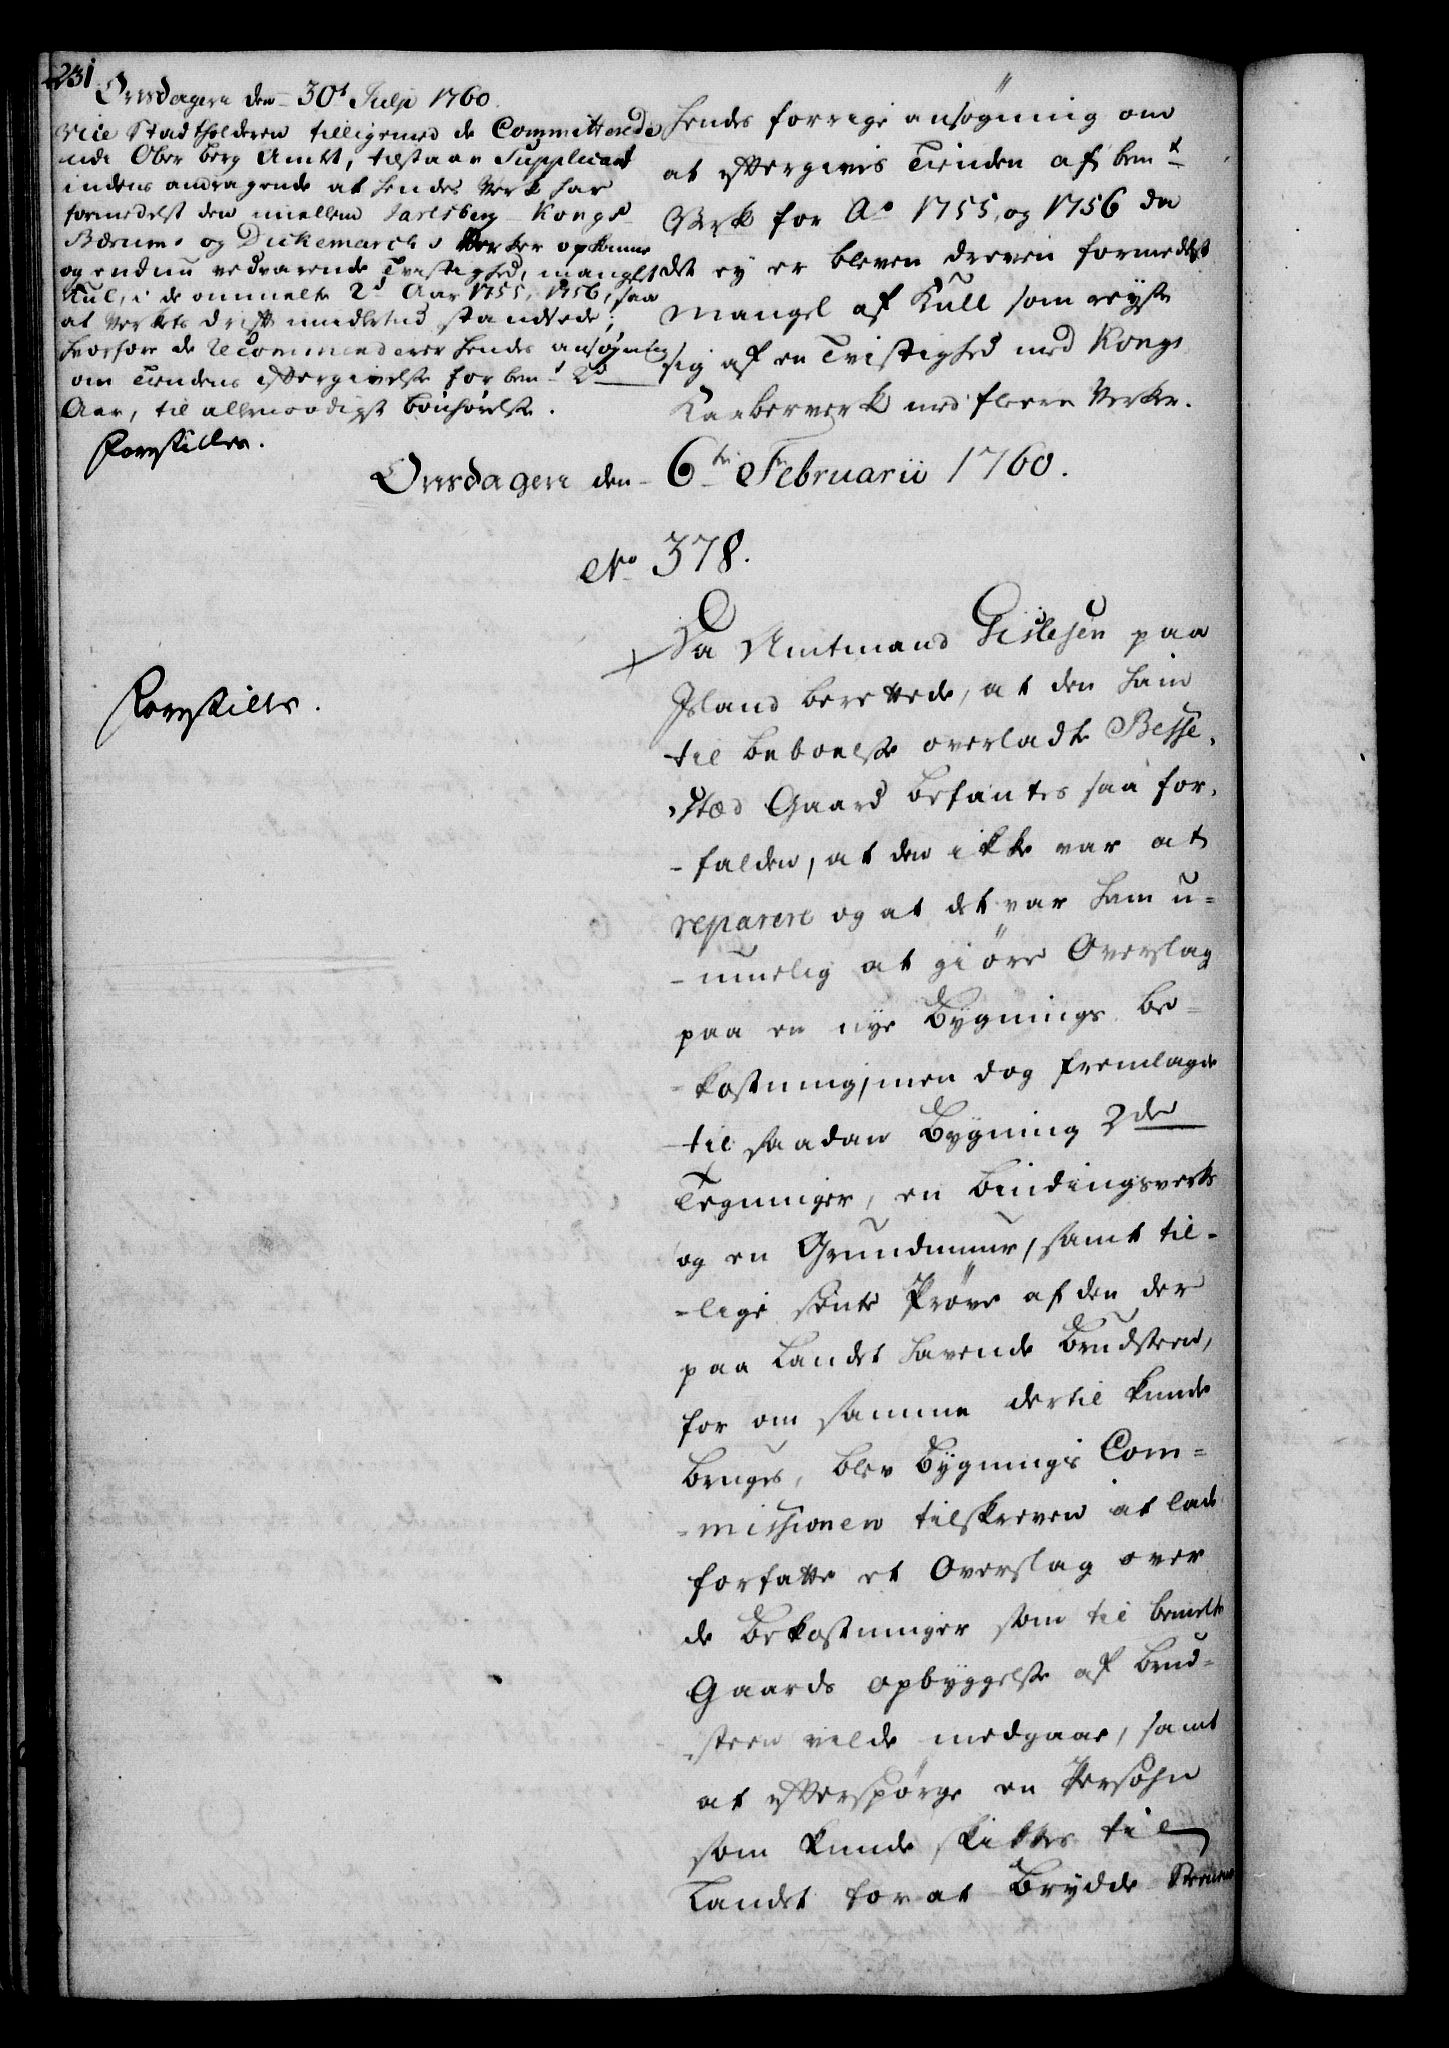 231
Onsdagen den 30t Julii 1760.
Vice Stadtholderen tilligemed de Committerede
udi Ober Berg Amtet, tilstaar Supplicant
indens andragende at hendes Verk har
formedelst den imellem Jarlsberg Kongs
Bærums og Dickemarchs Verker opkomne
og endnu vedvarende Tvistighed, manglet
Kul, i de ommelte 2de Aar 1755, 1756, saa
at Verkets drift imidlertid standsede;
hvorfore de recommenderer hendes ansøgning
om Tiendens Eftergivelse for bemte 2de
Aar, til allernaadigst bønhørelse.
Forestilles.
hendes forrige ansøgning om
at eftergives Tienden af bemt
Verk for Ao 1755, og 1756 da
det ey er bleven dreven formedelst
Mangel af Kull som reyste
sig af en Tvistighed med Kongs
Kaaberverk med fleere Verker.
Onsdagen den 6te Februarii 1760.
No 378.
Forestilles.
Da Amtmand Gislesen paa
Island berettede, at den ham
til beboelse overladte Besse-
-stæd Gaard befantes saa for-
-falden, at den ikke var at
reparere og at det var ham u-
-muelig at giøre Overslag
paa en nye Bygnings be-
-kostning, men dog fremlagde
til saadan Bygning 2de
Tegninger, en bindingsverks
og en Grundmuur, samt til-
-lige sendte Prøve af den der
paa Landet havende Brudsteen,
for om samme dertil kunde
bruges, blev Bygnings Com-
-missionen tilskreven at lade
forfatte et Overslag over
de Bekostninger som til bemelte
Gaards opbyggelse af Brud-
-steen vilde medgaae, samt
at efterspørge en Persohn
som kunde skikkes til
Landet for at Brydde Steenen